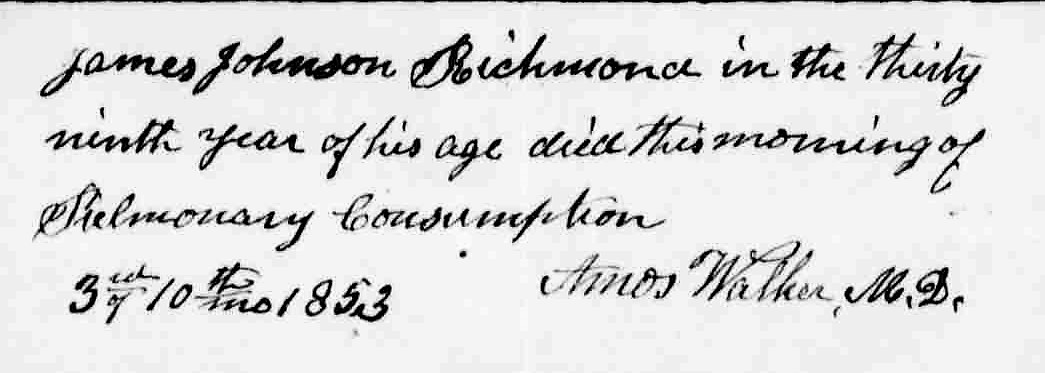 James Johnson Richmond in the thirty
ninth year of his age died this morning of
Pulmonary Consumption
3rd of 10th mo 1853 Amos Walker, M.D.